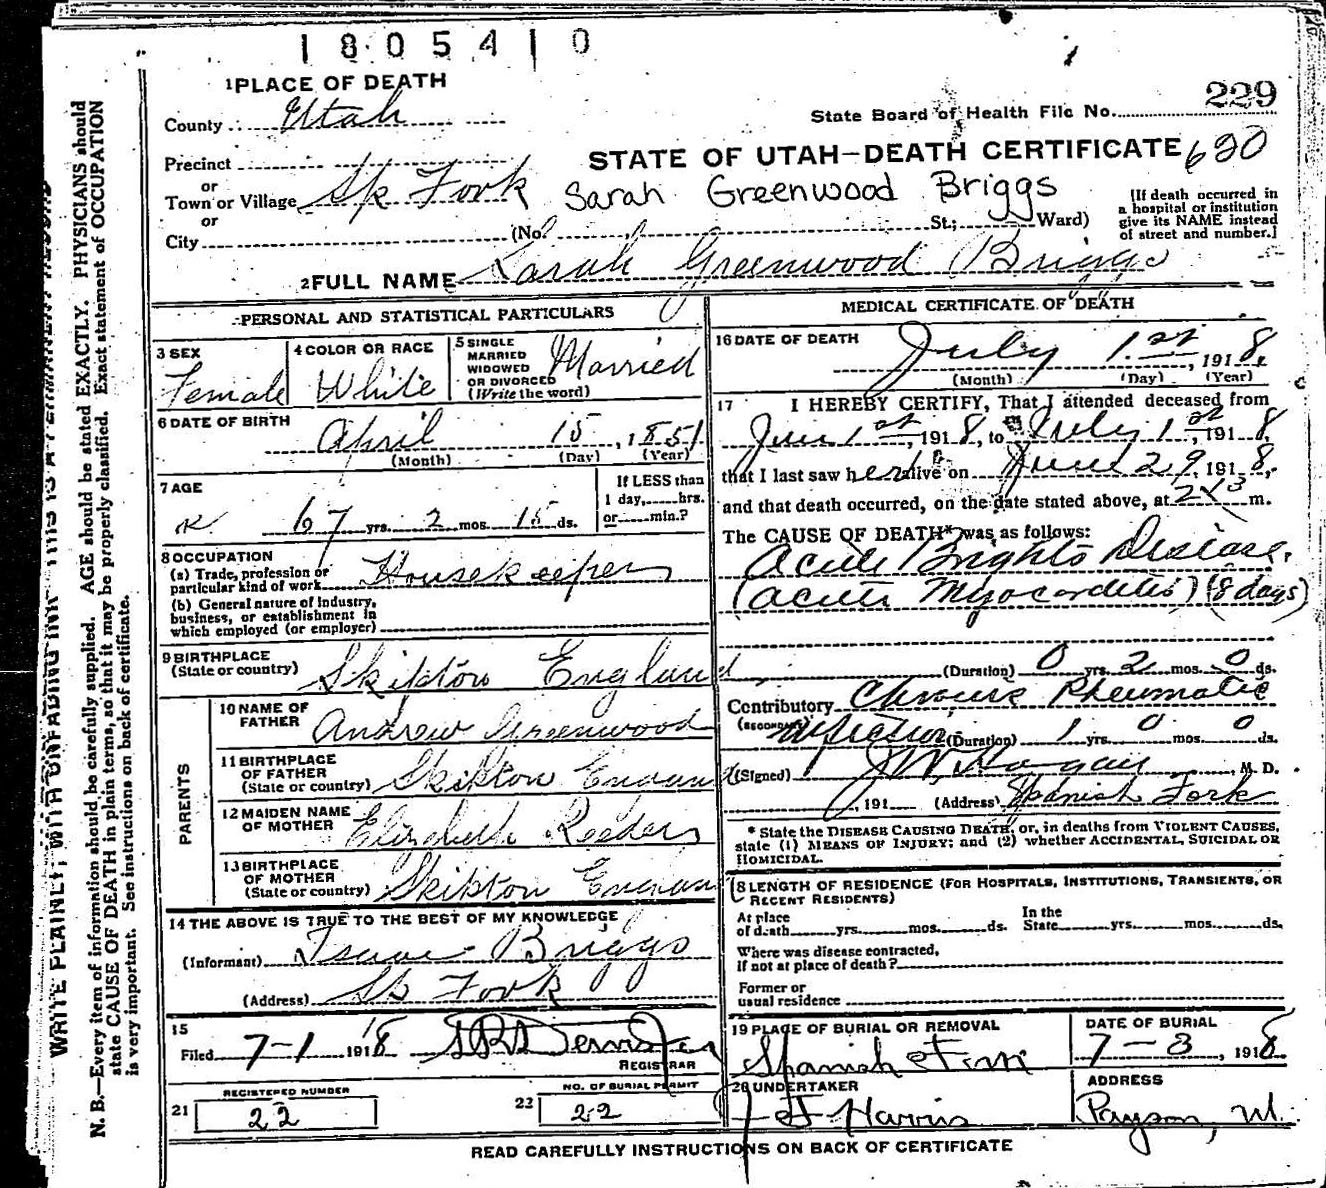 1805410
1 PLACE OF DEATH
229
County Utah
State Board of Health File No.
Precinct
STATE OF UTAH—DEATH CERTIFICATE 620
or
Town or Village Sp Fork Sarah Greenwood Briggs
or
City (No. St.; Ward)
[If death occurred in
a hospital or institution
give its NAME instead
of street and number.]
2 FULL NAME Sarah Greenwood Briggs
PERSONAL AND STATISTICAL PARTICULARS
3 SEX Female
4 COLOR OR RACE White
5 SINGLE
MARRIED
WIDOWED
OR DIVORCED
(Write the word) Married
6 DATE OF BIRTH
April 15, 1851
(Month) (Day) (Year)
7 AGE
67 yrs. 2 mos. 15 ds.
If LESS than
1 day, hrs.
or min.?
8 OCCUPATION
(a) Trade, profession or
particular kind of work Housekeeper
(b) General nature of industry,
business, or establishment in
which employed (or employer)
9 BIRTHPLACE
(State or country) Skipton England
PARENTS
10 NAME OF
FATHER Andrew Greenwood
11 BIRTHPLACE
OF FATHER
(State or country) Skipton
12 MAIDEN NAME
OF MOTHER Elizabeth Reeders
13 BIRTHPLACE
OF MOTHER
(State or country) Skipton
14 THE ABOVE IS TRUE TO THE BEST OF MY KNOWLEDGE
(Informant) Isaac Briggs
(Address) Sp Fork
15
Filed 7-1 1918
REGISTRAR
REGISTERED NUMBER
21 22
NO. OF BURIAL PERMIT
23 22
MEDICAL CERTIFICATE OF DEATH
16 DATE OF DEATH
July 1st, 1918.
(Month) (Day) (Year)
17 I HEREBY CERTIFY, That I attended deceased from
June 1st, 1918, to July 1st, 1918,
that I last saw her alive on June 29, 1918,
and that death occurred, on the date stated above, at m.
The CAUSE OF DEATH* was as follows:
Acute Brights Disease.
(Acute Myocarditis) (8 days)
(Duration) 0 yrs. 2 mos. 0 ds.
Contributory Chronic Rheumatic
(SECONDARY) affection (Duration) 1 yrs. 0 mos. 0 ds.
(Signed) J W Hagan M. D.
, 191 (Address) Spanish Fork
* State the DISEASE CAUSING DEATH, or, in deaths from VIOLENT CAUSES,
state (1) MEANS OF INJURY; and (2) whether ACCIDENTAL, SUICIDAL OR
HOMICIDAL.
18 LENGTH OF RESIDENCE (FOR HOSPITALS, INSTITUTIONS, TRANSIENTS, OR
RECENT RESIDENTS)
At place
of death yrs. mos. ds.
In the
State yrs. mos. ds.
Where was disease contracted,
if not at place of death?
Former or
usual residence
19 PLACE OF BURIAL OR REMOVAL
Spanish Fork
DATE OF BURIAL
7-3, 1918
20 UNDERTAKER
Harris
ADDRESS
Payson, Ut.
READ CAREFULLY INSTRUCTIONS ON BACK OF CERTIFICATE
WRITE PLAINLY, WITH UNFADING INK THIS IS A PERMANENT RECORD
N. B.—Every item of information should be carefully supplied. AGE should be stated EXACTLY. PHYSICIANS should
state CAUSE OF DEATH in plain terms, so that it may be properly classified. Exact statement of OCCUPATION
is very important. See instructions on back of certificate.